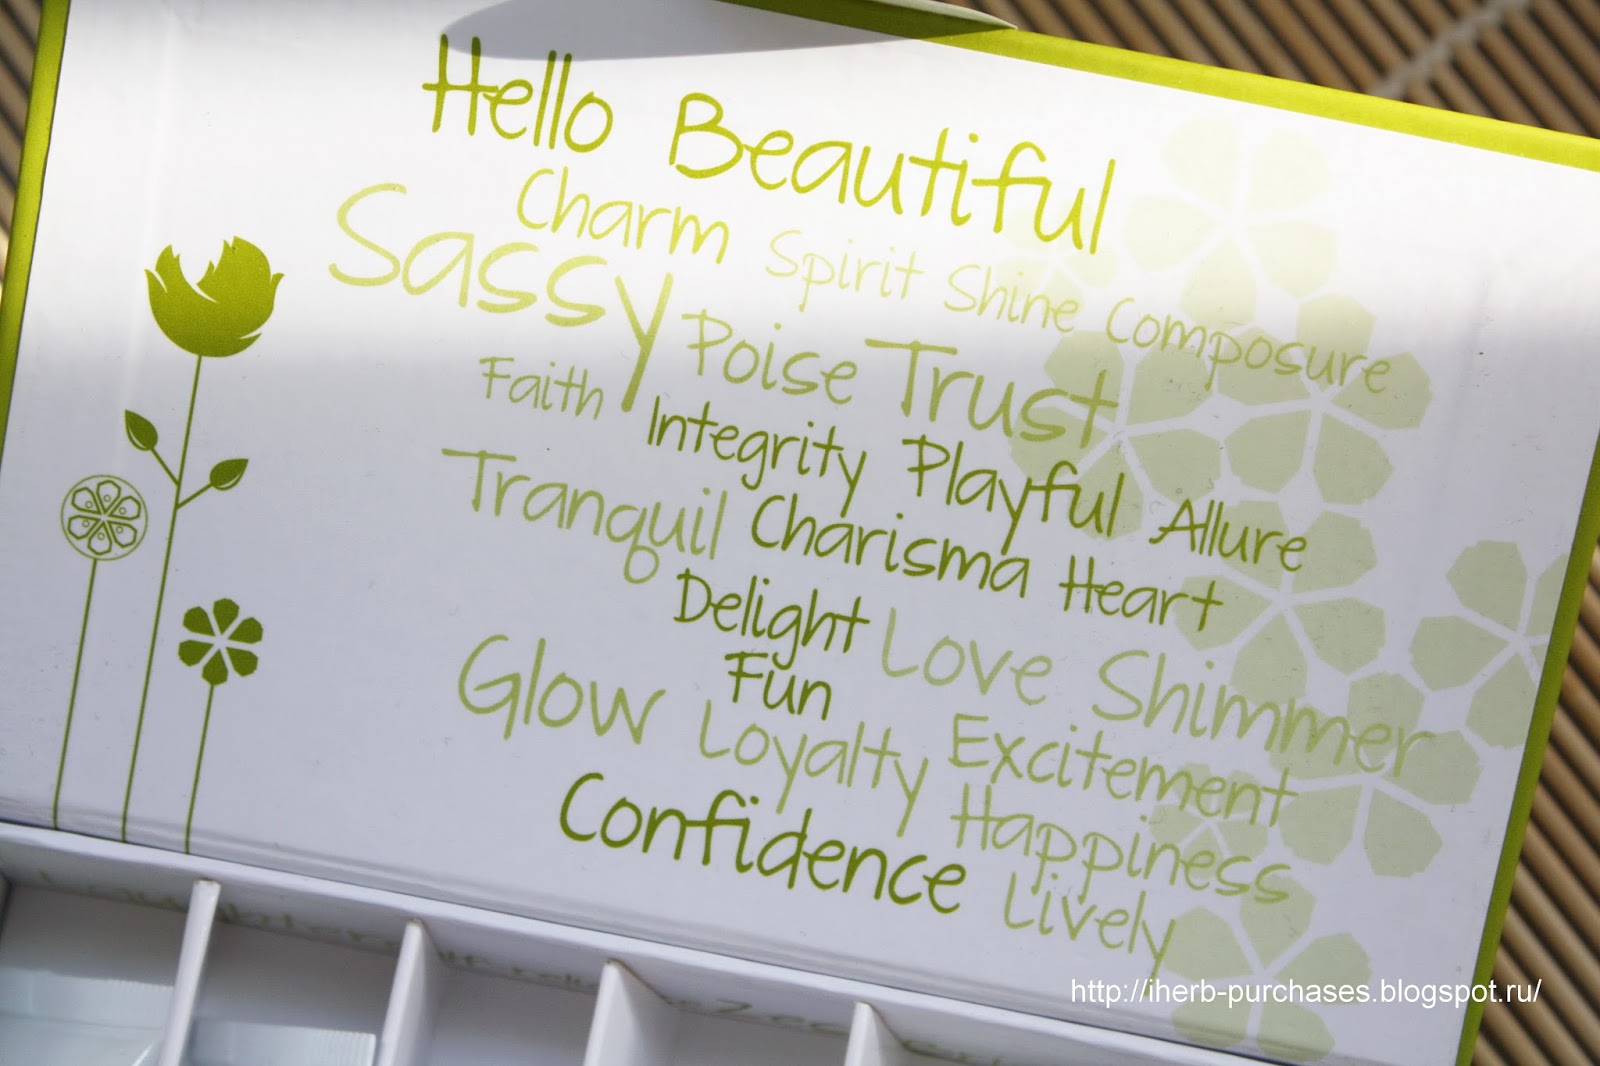 Hello Beautiful
Charm Spirit Shine Composure
Sassy Poise Trust
Faith Integrity Playful Allure
Tranquil Charisma Heart
Delight Love Shimmer
Glow Fun Excitement
Loyalty Happiness
Confidence Lively
http://iherb-purchases.blogspot.ru/